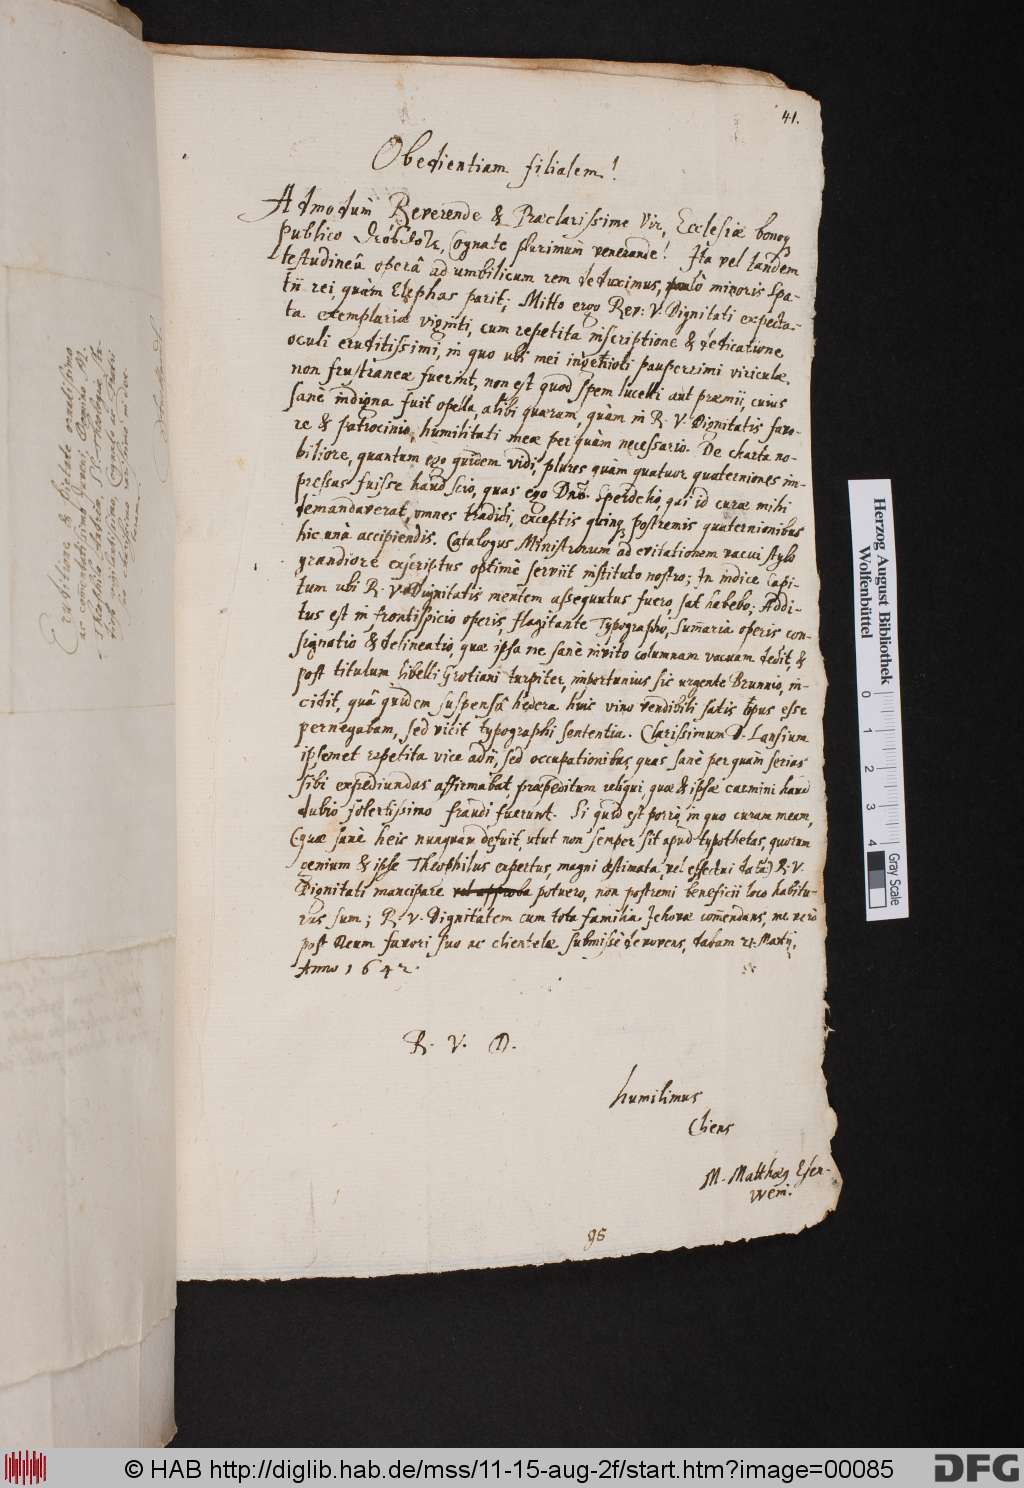 41.
Obedientiam filialem!
Admodum Reverende & Præclarissime Vir, Ecclesiæ bonoq
publico Cognate plurimùm venerande! Ita vel tandem
testudineâ operâ ad umbilicum rem deduximus, paulò minoris spa-
tii rei, quàm Elephas parit; Mitto ergo Rev: V. Dignitati expecta-
ta exemplaria viginti, cum repetita inscriptione & dedicatione
oculi eruditissimi, in quo ubi mei ingenioli pauperrimi viriculæ
non frustraneæ fuerint, non est quod spem lucelli aut præmii, cuius
sanè indigna fuit opella, alibi quæram, quàm in R. V. Dignitatis favo-
re & patrocinio, humilitati meæ perquàm necessario. De charta no-
biliore, quantum ego quidem vidi, plures quàm quatuor quaterniones im-
pressus fuisse haud scio, quas ego Dno. qui id curæ mihi
demandaverat, omnes tradidi, exceptis quinq postremis quaternionibus
hic unà accipiendis. Catalogus Ministrorum ad evitationem vacui stylo
grandiore exscriptus optimè serviit instituto nostro; In indice Capi-
tum ubi R. V. Dignitatis mentem assequutus fuero, sat habebo; Addi-
tus est in frontispicio operis, flagitante Typographo, summaria operis con-
signatio & delineatio, quæ ipsa me sanè invito columnam vacuam dedit, &
post titulum libelli Grotiani turpiter, importunius sic urgente Brunnio, in-
cidit, quâ quidem suspensâ hederâ huic vino vendibili satis opus esse
pernegabam, sed vicit typographi sententia. Clarissimum D. Lansium
ipsemet repetita vice adii, sed occupationibus quas sanè perquam serias
sibi expediundas affirmabat, præpeditum reliqui, quæ & ipsæ carmini haud
dubio solertissimo fraudi fuerunt. Si quid est porrò, in quo curam meam,
(quæ sanè heic nunquam defuit, utut non semper sit apud typothetas, quorum
genium & ipse Theophilus expertus, magni æstimata, vel effectui data) R. V.
Dignitati mancipare potuero, non postremi beneficii loco habitu-
rus sum; R. V. Dignitatem cum tota familia Jehovæ commendans, me verò
post Deum favori suo ac clientelæ submissè devovens, dabam 21. Martij,
Anno 1642.
R. V. D.
humilimus
Cliens
M. Matthæq Esen-
wein.
95
Herzog August Bibliothek
Wolfenbüttel
0 1 2 3 4 Gray Scale
© HAB http://diglib.hab.de/mss/11-15-aug-2f/start.htm?image=00085
DFG